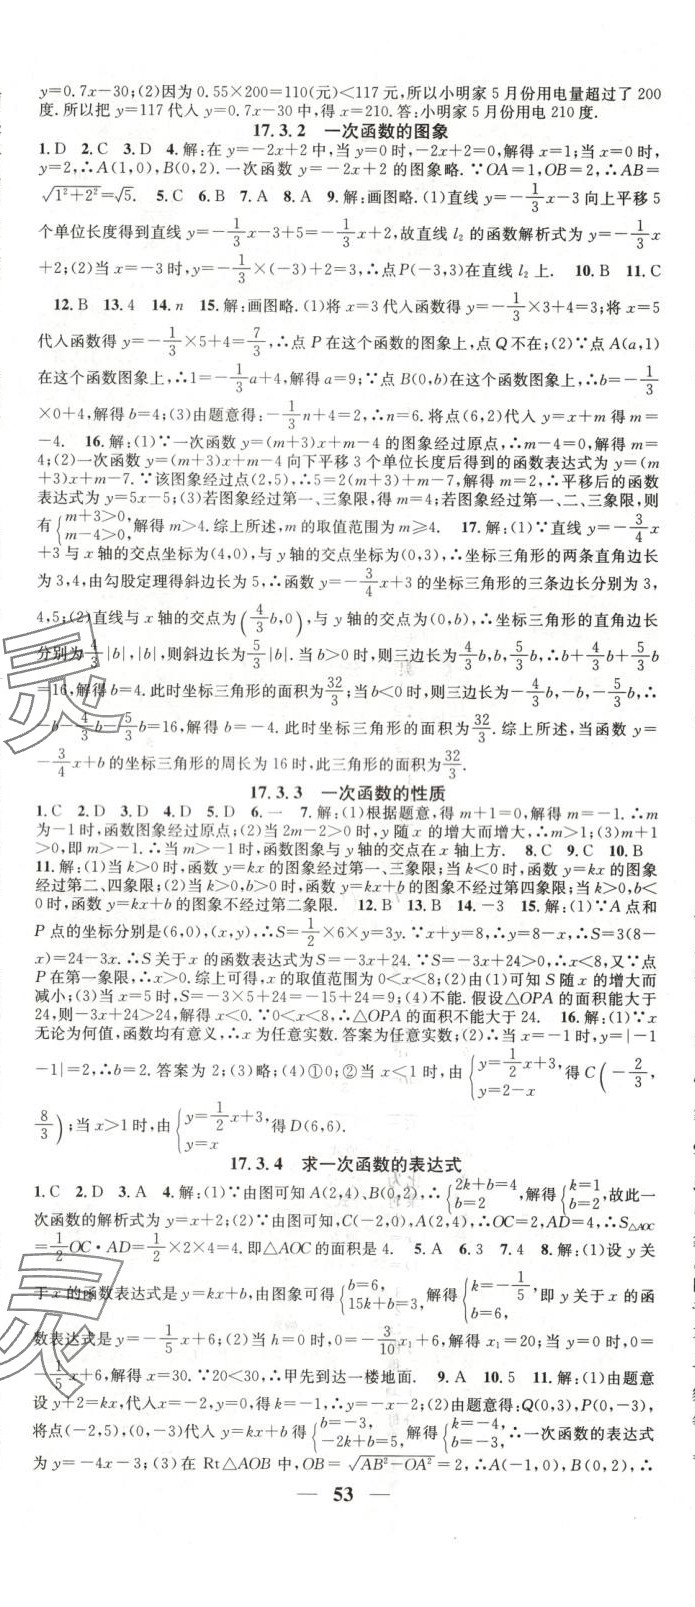 y=0.7x-30;(2)因为 0.55×200=110(元)<117元,所以小明家5月份用电量超过了200
度.所以把y=117代入y=0.7x-30中,得x=210.答:小明家5月份用电210度.
17.3.2 一次函数的图象
1.D 2.C 3.D 4.解:在y=-2x+2中,当y=0时,-2x+2=0,解得x=1;当x=0时,
y=2,∴A(1,0),B(0,2).一次函数y=-2x+2的图象略.∵OA=1,OB=2,∴AB=
√(1²+2²)=√5. 5.C 6.B 7.A 8.A 9.解:画图略.(1)直线y=-1/3x-3向上平移5
个单位长度得到直线y=-1/3x-3+5=-1/3x+2,故直线l₂的函数解析式为y=-1/3x
+2;(2)当x=-3时,y=-1/3×(-3)+2=3,∴点P(-3,3)在直线l₂上. 10.B 11.C
12.B 13.4 14.n 15.解:画图略.(1)将x=3代入函数得y=-1/3×3+4=3;将x=5
代入函数得y=-1/3×5+4=7/3,∴点P在这个函数的图象上,点Q不在;(2)∵点A(a,1)
在这个函数图象上,∴1=-1/3a+4,解得a=9;∵点B(0,b)在这个函数图象上,∴b=-1/3
×0+4,解得b=4;(3)由题意得:-1/3n+4=2,∴n=6.将点(6,2)代入y=x+m得m=
-4. 16.解:(1)∵一次函数y=(m+3)x+m-4的图象经过原点,∴m-4=0,解得m=
4;(2)一次函数y=(m+3)x+m-4向下平移3个单位长度后得到的函数表达式为y=(m
+3)x+m-7.∵该图象经过点(2,5),∴5=2(m+3)+m-7,解得m=2,∴平移后的函数
表达式为y=5x-5;(3)若图象经过第一、三象限,得m=4;若图象经过第一、二、三象限,则
有{m+3>0, m-4>0,解得m>4.综上所述,m的取值范围为m≥4. 17.解:(1)∵直线y=-3/4x
+3与x轴的交点坐标为(4,0),与y轴的交点坐标为(0,3),∴坐标三角形的两条直角边长
为3,4,由勾股定理得斜边长为5.∴函数y=-3/4x+3的坐标三角形的三条边长分别为3,
4,5;(2)直线与x轴的交点为(4/3b,0),与y轴的交点为(0,b),∴坐标三角形的直角边长
分别为4/3|b|,|b|,则斜边长为5/3|b|.当b>0时,则三边长为4/3b,b,5/3b,∴4/3b+b+5/3b
=16,解得b=4.此时坐标三角形的面积为32/3;当b<0时,则三边长为-4/3b,-b,-5/3b,∴
-b-4/3b-5/3b=16,解得b=-4.此时坐标三角形的面积为32/3.综上所述,当函数y=
-3/4x+b的坐标三角形的周长为16时,此三角形的面积为32/3.
17.3.3 一次函数的性质
1.C 2.D 3.D 4.D 5.D 6.一 7.解:(1)根据题意,得m+1=0,解得m=-1.∴m
为-1时,函数图象经过原点;(2)当2m-2>0时,y随x的增大而增大,∴m>1;(3)m+1>
0,即m>-1.∴m>-1时,函数图象与y轴的交点在x轴上方. 8.C 9.C 10.B
11.解:(1)当k>0时,函数y=kx的图象经过第一、三象限;当k<0时,函数y=kx的图象
经过第二、四象限;(2)当k>0,b>0时,函数y=kx+b的图象不经过第四象限;当k>0,b<
0时,函数y=kx+b的图象不经过第二象限. 12.B 13.B 14.-3 15.解:(1)∵A点和
P点的坐标分别是(6,0),(x,y),∴S=1/2×6×y=3y.∵x+y=8,∴y=8-x,∴S=3(8-
x)=24-3x.∴S关于x的函数表达式为S=-3x+24.∵S=-3x+24>0,∴x<8,又∵点
P在第一象限,∴x>0.综上可得,x的取值范围为0<x<8;(2)由(1)可知S随x的增大而
减小;(3)当x=5时,S=-3×5+24=-15+24=9;(4)不能.假设△OPA的面积能大于
24,则-3x+24>24,解得x<0.∵0<x<8,∴△OPA的面积不能大于24. 16.解:(1)∵x
无论为何值,函数均有意义,∴x为任意实数.答案为任意实数;(2)∴当x=-1时,y=|-1
-1|=2,∴b=2.答案为2;(3)略;(4)①0;②当x<1时,由{y=1/2x+3, y=2-x得C(-2/3,
8/3);当x>1时,由{y=1/2x+3, y=x得D(6,6).
17.3.4 求一次函数的表达式
1.C 2.D 3.A 4.解:(1)∵由图可知A(2,4),B(0,2),∴{2k+b=4, b=2,解得{k=1, b=2,故此一
次函数的解析式为y=x+2;(2)∵由图可知,C(-2,0),A(2,4),∴OC=2,AD=4,∴S△AOC
=1/2OC·AD=1/2×2×4=4.即△AOC的面积是4. 5.A 6.3 7.4 8.解:(1)设y关
于x的函数表达式是y=kx+b,由图象可得{b=6, 15k+b=3,解得{k=-1/5, b=6,即y关于x的函
数表达式是y=-1/5x+6;(2)当h=0时,0=-3/10x₁+6,解得x₁=20;当y=0时,0=
-1/5x+6,解得x=30.∵20<30,∴甲先到达一楼地面. 9.A 10.5 11.解:(1)由题意
设y+2=kx,代入x=-2,y=0,得k=-1,∴y=-x-2;(2)由题意得:Q(0,3),P(0,-3),
将点(-2,5),(0,-3)代入y=kx+b得{b=-3, -2k+b=5,解得{k=-4, b=-3,∴一次函数的表达式
为y=-4x-3;(3)在Rt△AOB中,OB=√(AB²-OA²)=2,∴A(-1,0),B(0,2),∴
53